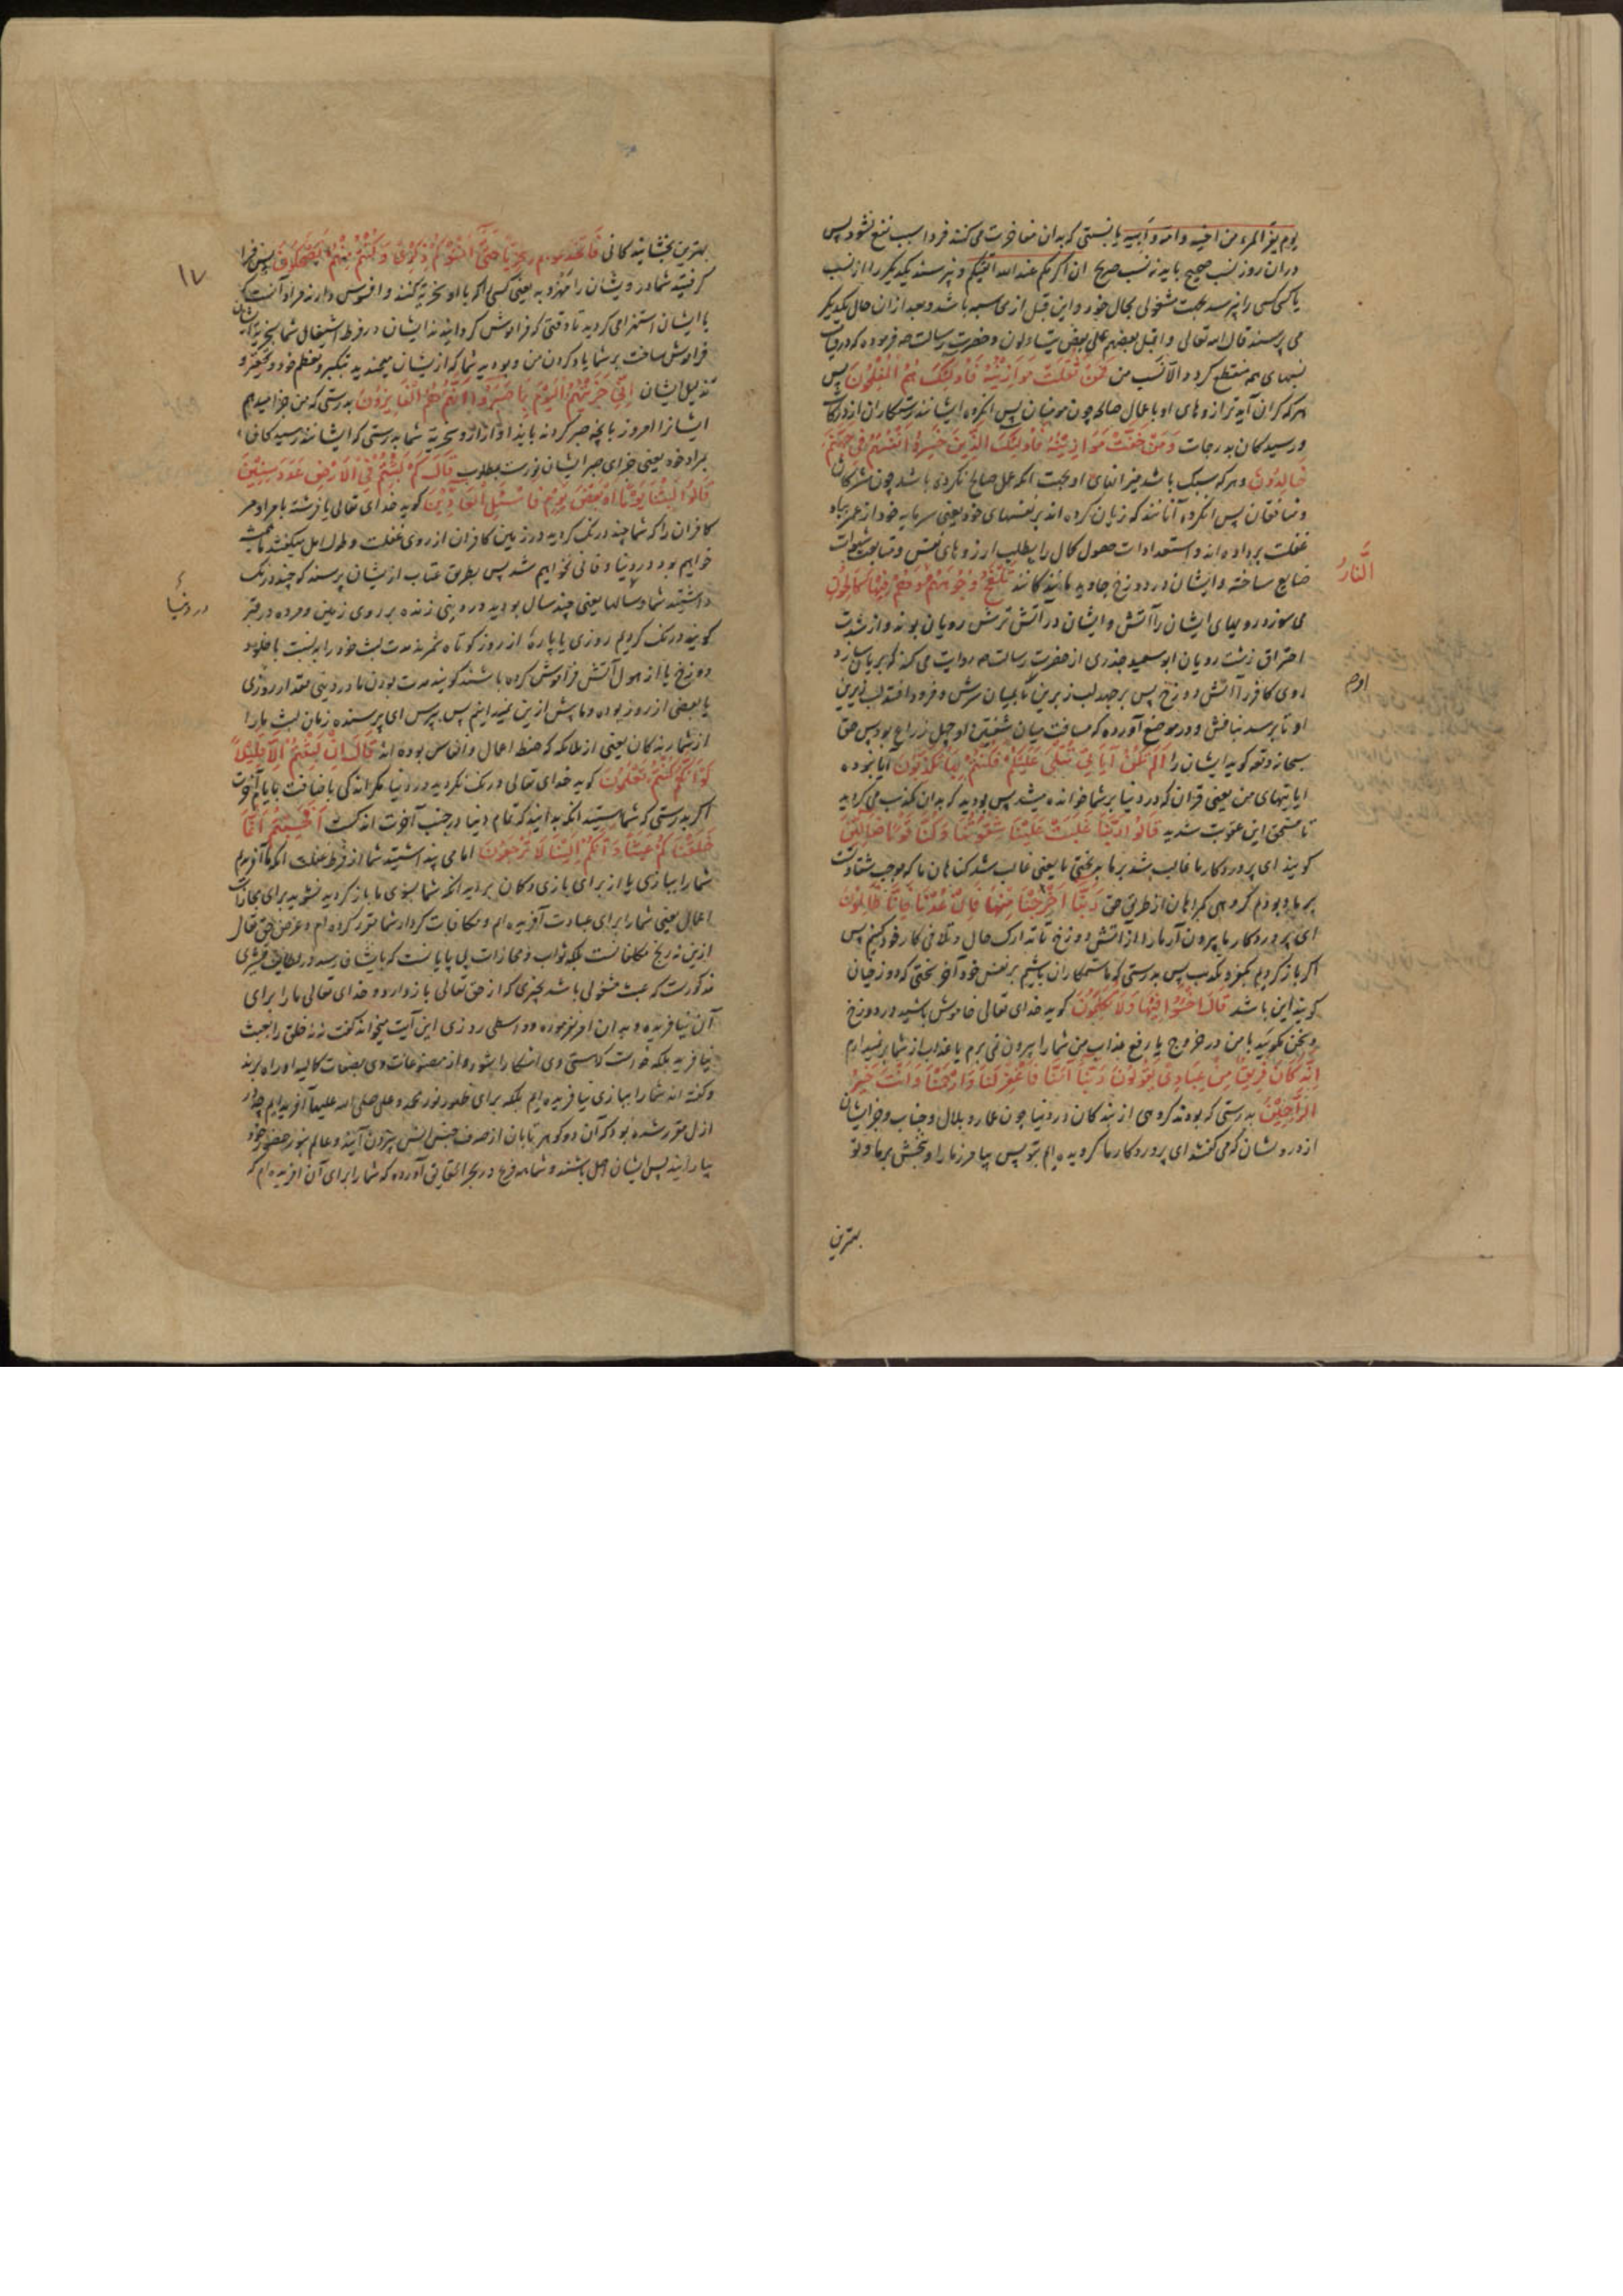 یوم یفر المرء من اخیه و امه و ابیه یا بنسبتی که بدان مفاخرت می کنند فردا سبب نفع نشود پس
دران روز نسب صحیح باید نه نسب صریح ان اکرمکم عند الله اتقیکم و نپرسند یکدیگر را از نسب
یا کسی کسی را نپرسد بجهت مشغولی بحال خود و این قبل از محاسبه باشد و بعد ازان حال یکدیگر
می پرسند قال الله تعالی و اقبل بعضهم علی بعض یتساءلون و حضرت رسالت صه فرموده که در قیامت
نسبهای همه منقطع کردد الا نسب من فَمَنْ ثَقُلَتْ مَوَازِینُهُ فَاُولٰئِکَ هُمُ الْمُفْلِحُونَ پس
هر که کران آید ترازوهای او باعمال صالحه چون مومنان پس انکروه ایشانند رستکاران از درکات
و رسیدکان بدرجات وَمَنْ خَفَّتْ مَوَازِینُهُ فَاُولٰئِکَ الَّذِینَ خَسِرُوا اَنْفُسَهُمْ فِی جَهَنَّمَ
خَالِدُونَ و هر که سبک باشد میزانهای او بجهت انکه عمل صالح نکرده باشد چون مشرکان
و منافقان پس انکروه آنانند که زیان کرده اند بر نفسهای خود یعنی سرمایه خود از عمر بباد
غفلت برداده اند و استعدادات حصول کمال را بطلب ارزوهای نفس و متابعت شهوات
ضایع ساخته و ایشان در دوزخ جاوید مانندکانند تَلْفَحُ وُجُوهَهُمُ وَهُمْ فِیهَا کَالِحُونَ
النَّارُ
می سوزد رویهای ایشان را آتش و ایشان در آتش ترش رویان بوند و از شدت
احتراق زشت رویان ابو سعید خدری از حضرت رسالت صه روایت می کند که بریان سازد
روی کافر را آتش دوزخ پس برجهد لب زبرین تا بمیان سرش و فرو افتد لب زیرین
او تا برسد بنافش و در موضع آورده که مسافت میان شفتین او چهل ذراع بود پس حق
سبحانه و تعه کوید ایشان را اَلَمْ تَکُنْ آیَاتِی تُتْلٰی عَلَیْکُمْ فَکُنْتُمْ بِهَا تُکَذِّبُونَ آیا نبوده
ایا ایتهای من یعنی قران که در دنیا بر شما خوانده میشد پس بودید که بدان تکذیب می کردید
تا مستحق این عقوبت شدید قَالُوا رَبَّنَا غَلَبَتْ عَلَیْنَا شِقْوَتُنَا وَکُنَّا قَوْمًا ضَالِّینَ
کویند ای پروردکار ما غالب شد بر ما بدبختی ما یعنی غالب شد کناهان ما که موجب شقاوت
بر ما و بودیم کروهی کمراهان از طریق حق رَبَّنَا اَخْرِجْنَا مِنْهَا فَاِنْ عُدْنَا فَاِنَّا ظَالِمُونَ
ای پروردکار ما بیرون آر ما را از آتش دوزخ تا تدارک حال و تلافی کار خود کنیم پس
اکر باز کردیم بکفر و تکذیب پس بدرستی که ما ستمکاران باشیم بر نفس خود آخر سخنی که دوزخیان
کویند این باشد قَالَ اخْسَئُوا فِیهَا وَلَا تُکَلِّمُونِ کوید خدای تعالی خاموش باشید در دوزخ
و سخن مکویید با من در خروج یا رفع عذاب من شما را بیرون نمی برم یا عذاب از شما بر نمیدارم
اِنَّهُ کَانَ فَرِیقٌ مِنْ عِبَادِی یَقُولُونَ رَبَّنَا آمَنَّا فَاغْفِرْ لَنَا وَارْحَمْنَا وَاَنْتَ خَیْرُ
الرَّاحِمِینَ بدرستی که بودند کروهی از بندکان در دنیا چون عمار و بلال و خباب و جز ایشان
از درویشان که می کفتند ای پروردکار ما کرویده ایم بتو پس بیامرز ما را و ببخش بر ما و تو
بهترین
۱۷
بهترین بخشایندکانی فَاتَّخَذْتُمُوهُمْ سِخْرِیًّا حَتّٰی اَنْسَوْکُمْ ذِکْرِی وَکُنْتُمْ مِنْهُمْ تَضْحَکُونَ پس فرا
کرفتید شما درویشان را مهزو به یعنی کسی که با او سخریه کنند و افسوس دارند مراد آنست که
با ایشان استهزا می کردید تا وقتی که فراموش کردانیدند ایشان در فرط اشتغال شما بسخریه ایشان
فراموش ساخت بر شما یاد کردن من و بودید شما که از ایشان میخندید بتکبر و تعظم خود و تحقیر و
تذلیل ایشان اِنِّی جَزَیْتُهُمُ الْیَوْمَ بِمَا صَبَرُوا اَنَّهُمْ هُمُ الْفَائِزُونَ بدرستی که من جزا میدهم
ایشانرا امروز بانچه صبر کردند بایذا و آزار و سخریه شما بدرستی که ایشانند رسیدکان
بمراد خود یعنی جزای صبر ایشان فوزست بمطلوب قَالَ کَمْ لَبِثْتُمْ فِی الْاَرْضِ عَدَدَ سِنِینَ
قَالُوا لَبِثْنَا یَوْمًا اَوْ بَعْضَ یَوْمٍ فَاسْئَلِ الْعَادِّینَ کوید خدای تعالی یا فرشته بامر او مر
کافران را که شما چند درنک کردید در زمین کافران از روی غفلت و طول امل میکفتند ما همیشه
خواهیم بود در دنیا و فانی نخواهیم شد پس بطریق عتاب از یشان پرسند که چند درنک
در دنیا
داشتید شما و سالها یعنی چند سال بودید در دنیی زنده بر روی زمین و مرده در قبر
کویند درنک کردیم روزی یا پارهٔ از روز کوتاه شمرند مدت لبث خود را به نسبت با خلود
دوزخ یا از هول آتش فراموش کرده باشند کویند مدت بودن ما در دنیی مقدار روزی
یا بعضی از روز بوده و ما بیش ازین نمیدانیم پس بپرس ای پرسنده زمان لبث ما را
از شمارندکان یعنی از ملائکه که حفظ اعمال و انفاس بوده اند قَالَ اِنْ لَبِثْتُمْ اِلَّا قَلِیلًا
لَوْ اَنَّکُمْ کُنْتُمْ تَعْلَمُونَ کوید خدای تعالی درنک نکردید در دنیا مکر اندکی باضافت با ایام آخرت
اکر بدرستی که شما هستید انکه بدانید که تمام دنیا در جنب آخرت اندکست اَفَحَسِبْتُمْ اَنَّمَا
خَلَقْنَاکُمْ عَبَثًا وَاَنَّکُمْ اِلَیْنَا لَا تُرْجَعُونَ ایا می پنداشتید شما از فرط غفلت انکه ما آفریدیم
شما را ببازی یا از برای بازی و کمان بردید انکه شما بسوی ما باز کردیده نشوید برای مجازات
اعمال یعنی شما را برای عبادت آفریده ام و مکافات کردار شما مقرر کرده ام و غرض حق تعالی
ازین نه ربح مکلفانست بلکه ثواب و مجازات بی پایانست که بایشان رسد و در لطایف قشیری
مذکورست که عبث مشغولی باشد بچیزی که از حق تعالی باز دارد و خدای تعالی ما را برای
آن نیافریده و بدان امر نفرموده و واسطی روزی این آیت میخواند کفت نه نه خلق را بعبث
نیافرید بلکه خواست که هستی وی اشکارا شود و از مصنوعات وی بصفات کمالیه او راه برند
و کفته اند شما را ببازی نیافریده ایم بلکه برای ظهور نور محمد و علی صلی الله علیهما آفریده ایم چه در
ازل مقرر شده بود که آن دو کوهر تابان از صدف جنس انس بیرون آیند و عالم بنور حضور خود
بیارایند پس ایشان اصل باشند و شما همه فرع در بحر الحقایق آورده که شما را برای آن افریده ام که